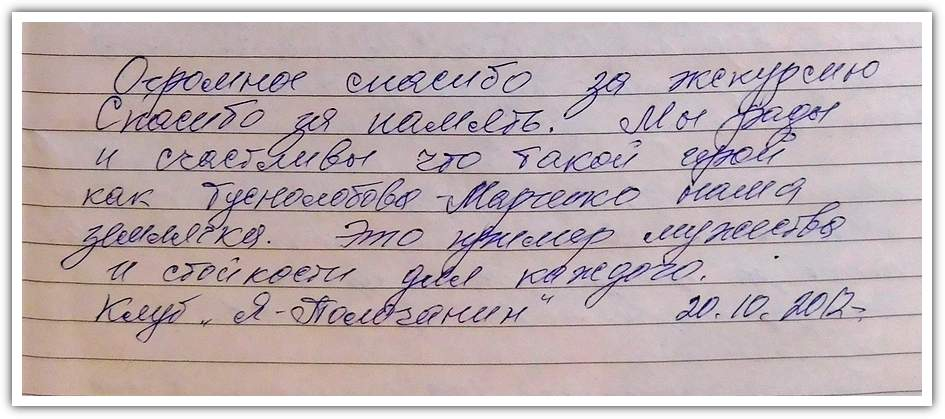 Огромное спасибо за экскурсию
Спасибо за память. Мы рады
и счастливы что такой герой
как Туснолобова-Марченко наша
землячка. Это пример мужества
и стойкости для каждого.
Клуб „Я-Полочанин" 20.10.2012г.